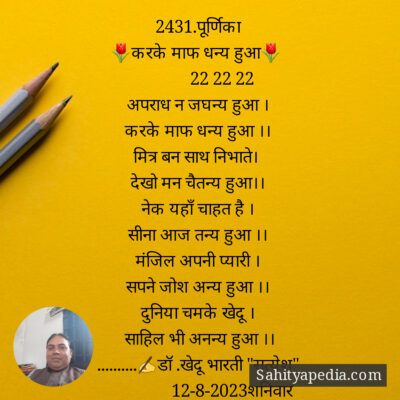 2431.पूर्णिका
🌷करके माफ धन्य हुआ🌷
22 22 22
अपराध न जघन्य हुआ ।
करके माफ धन्य हुआ ।।
मित्र बन साथ निभाते।
देखो मन चैतन्य हुआ।।
नेक यहाँ चाहत है ।
सीना आज तन्य हुआ ।।
मंजिल अपनी प्यारी ।
सपने जोश अन्य हुआ ।।
दुनिया चमके खेदू ।
साहिल भी अनन्य हुआ ।।
..........✍डॉ .खेदू भारती
Sahityapedia.com
12-8-2023शनिवार